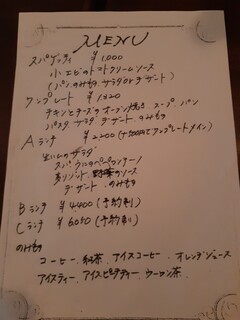 MENU
スパゲッティ ¥1,000
小エビのトマトクリームソース
(パン のみもの サラダ デザート)
ワンプレート ¥1320
チキンとチーズのオーブン焼き スープ パン
パスタ サラダ デザート のみもの
Aランチ ¥2,200 (+300円でワンプレートメイン)
生ハムのサラダ
スパゲッティのペペロンチーノ
のソース
デザート のみもの
Bランチ ¥4400 (予約制)
Cランチ ¥6050 (予約制)
のみもの
コーヒー、紅茶、アイスコーヒー、オレンジジュース
アイスティー、アイスピーチティー、ウーロン茶、